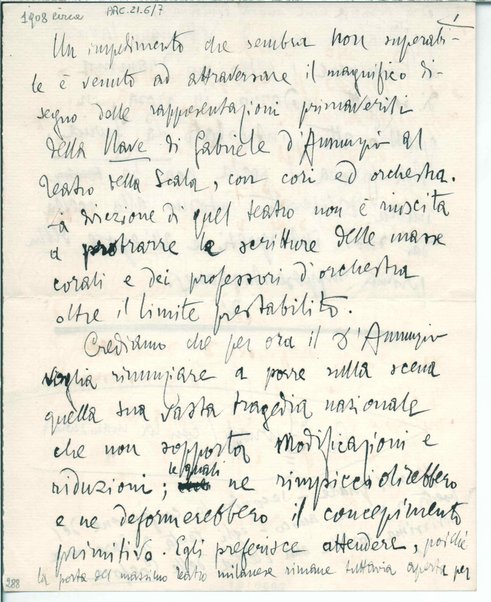 1908 circa
ARC.21.6/7
1
Un impedimento che sembra non superabi-
le è venuto ad attraversare il magnifico di-
segno delle rappresentazioni primaverili
della Nave di Gabriele d'Annunzio al
Teatro della Scala, con cori ed orchestra.
La direzione di quel teatro non è riuscita
a protrarre le scritture delle masse
corali e dei professori d'orchestra
oltre il limite prestabilito.
Crediamo che per ora il d'Annunzio
voglia rinunziare a porre sulla scena
quella sua vasta tragedia nazionale
che non sopporta modificazioni e
riduzioni; le quali ne rimpicciolirebbero
e ne deformerebbero il concepimento
primitivo. Egli preferisce attendere, poiché
la porta del massimo teatro milanese rimane tuttavia aperta per
288